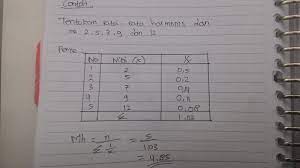 Contoh
Tentukan rata-rata harmonis dari
2, 5, 7, 9 dan 12
No Nilai (x)
1 2 0,5
2 5 0,2
3 7
4 9 0,11
5 12 0,08
Σ 1,03
Mh = n / Σ 1/x = 5 / 1,03
= 4,85